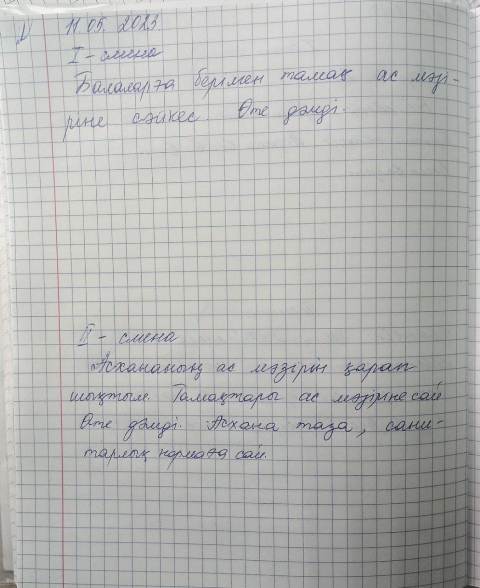 11.05.2023
I - смена
Балаларға берілген тамақ ас мәзі-
ріне сәйкес. Өте дәмді.
II - смена
Асхананың ас мәзірін қарап
шықтым. Тамақтары ас мәзіріне сай
Өте дәмді. Асхана таза, сани-
тарлық нормаға сай.